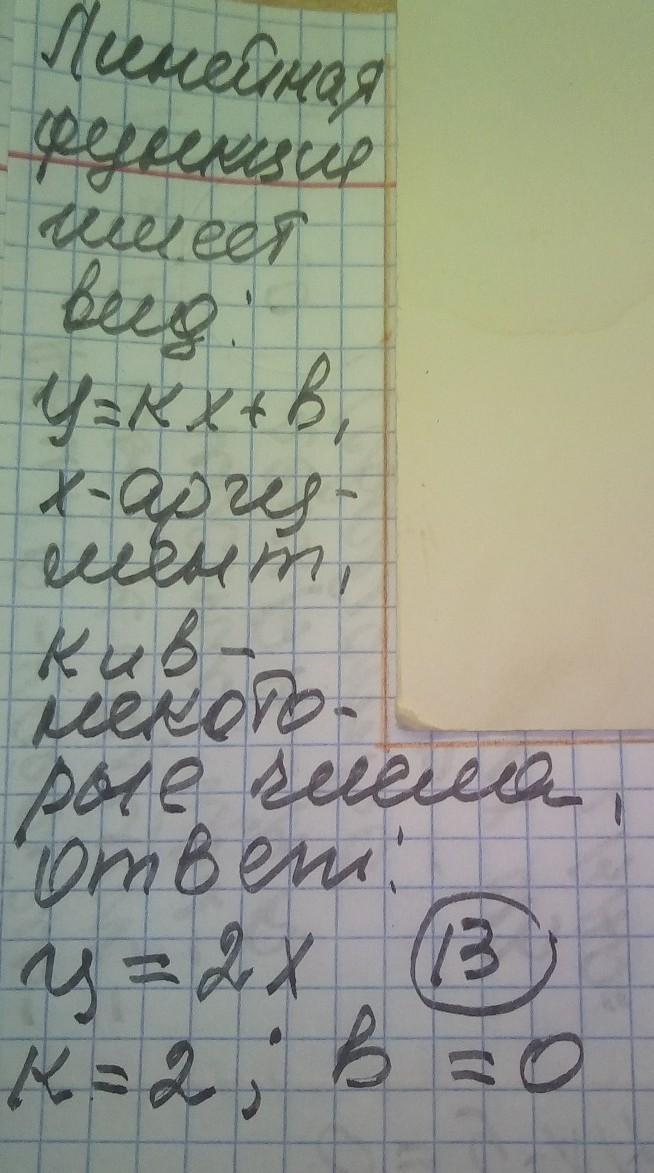 Линейная
функция
имеет
вид:
y=кx+в,
x-аргу-
мент,
к и в -
некото-
рые числа,
ответ:
y=2x В
к=2; в=0